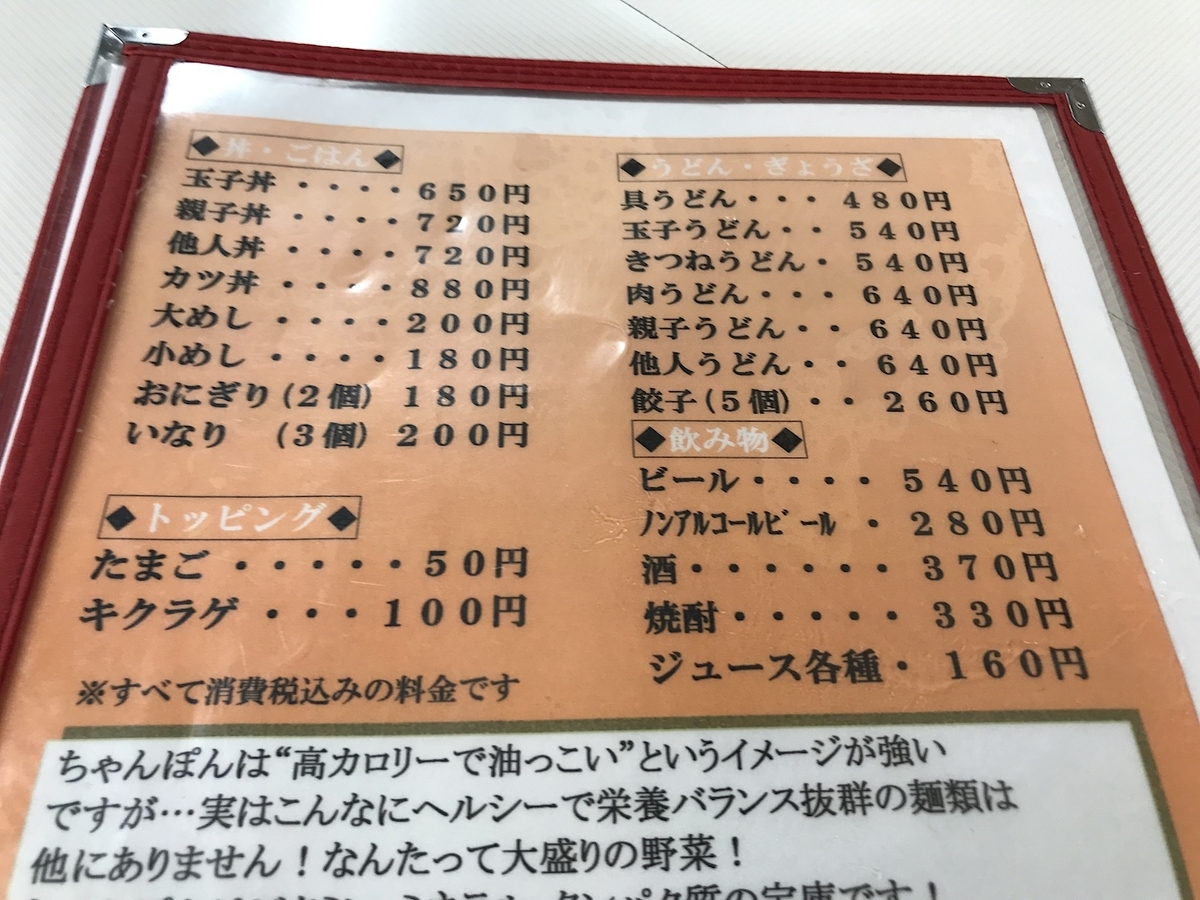 ◆丼・ごはん◆
玉子丼 ・・・・650円
親子丼 ・・・・720円
他人丼 ・・・・720円
カツ丼 ・・・・880円
大めし ・・・・200円
小めし ・・・・180円
おにぎり(2個) 180円
いなり (3個) 200円
◆トッピング◆
たまご ・・・・・50円
キクラゲ ・・・100円
※すべて消費税込みの料金です
◆うどん・ぎょうざ◆
具うどん・・・ 480円
玉子うどん・・ 540円
きつねうどん・ 540円
肉うどん・・・ 640円
親子うどん・・ 640円
他人うどん・・ 640円
餃子(5個) ・・ 260円
◆飲み物◆
ビール・・・・ 540円
ノンアルコールビール ・ 280円
酒・・・・・・ 370円
焼酎・・・・・ 330円
ジュース各種・ 160円
ちゃんぽんは“高カロリーで油っこい”というイメージが強い
ですが…実はこんなにヘルシーで栄養バランス抜群の麺類は
他にありません!なんたって大盛りの野菜!
質の宝庫です!